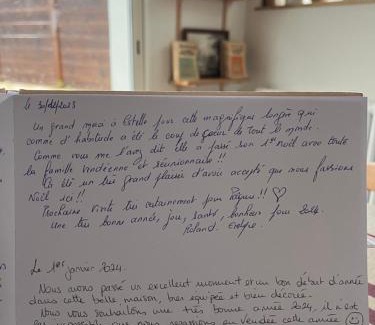 le 30/12/2023
Un grand merci à Estelle pour cette magnifique longère qui
comme d'habitude a été le coup de coeur de tout le monde.
Comme vous me l'avez dit elle a fait son 1er noël avec toute
la famille vendéenne et réunionnaise !!
ça été un très grand plaisir d'avoir accepté que nous fassions
Noël ici !!
Prochaine visite très certainement pour Pâques !! ♡
Une très bonne année, joie, santé, bonheur pour 2024.
Roland Evelyne.
Le 1er janvier 2024.
Nous avons passé un excellent moment et un bon début d'année
dans cette belle maison, bien équipée et bien décorée.
Nous vous souhaitons une très bonne année 2024, il n'est
pas impossible que nous revenions en Vendée cette année ☺